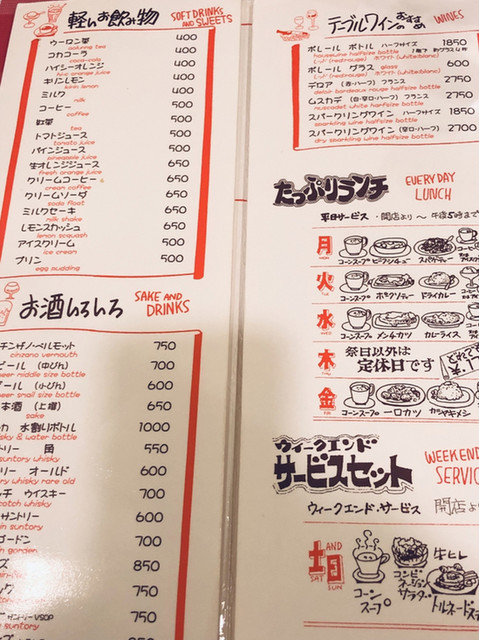 軽いお飲み物
SOFT DRINKS
AND SWEETS
ウーロン茶 400
oolong tea
コカコーラ 400
coca-cola
ハイシーオレンジ 400
hi-c orange juice
キリンレモン 400
kirin lemon
ミルク 400
milk
コーヒー 500
coffee
紅茶 500
tea
トマトジュース 500
tomato juice
パインジュース 500
pineapple juice
生オレンジジュース 650
fresh orange juice
クリームコーヒー 650
cream coffee
クリームソーダ 650
soda float
ミルクセーキ 650
milk shake
レモンスカッシュ 650
lemon squash
アイスクリーム 500
ice cream
プリン 500
egg pudding
お酒いろいろ
SAKE AND
DRINKS
チンザノ・ベルモット 750
cinzano vermouth
ビール (中びん) 700
beer middle size bottle
ビール (小びん) 600
beer small size bottle
本酒 (上撰) 650
sake
カ 水割りボトル 1000
whisky & water bottle
トリー 角 550
suntory whisky
リー オールド 600
whisky rare old
チ ウイスキー 700
scotch whisky
サントリー 600
gin suntory
ゴードン 700
gin gordon
ズ 850
ック 750
サントリーVSOP 750
750
テーブルワインのおすすめ
WINES
ボレール ボトル ハーフサイズ 1850
housewine halfsize bottle
レッド(red rouge) ホワイト(white blanc)
ボレール グラス 600
glass
レッド(red rouge) ホワイト(white blanc)
デロア (赤・ハーフ) フランス 2750
delair bordeaux rouge halfsize bottle
ムスカデ (白・辛口・ハーフ) フランス 2750
muscadet white halfsize bottle
スパークリングワイン ハーフサイズ 1850
sparkling wine halfsize bottle
スパークリングワイン (辛口・ハーフ) 2700
dry sparkling wine halfsize bottle
たっぷりランチ
EVERY DAY
LUNCH
平日サービス ・開店より〜午后5時まで
月
MON
コーンスープ ビーフシチュー スパゲティー
火
コーンスープ ポークソテー ドライカレー
水
コーンスープ メンチカツ カレーライス
木
祭日以外は
定休日です
金
コーンスープ 一口カツ カシヤキメシ
ウィークエンド
サービスセット
WEEKEND
SERVIC
ウィークエンド・サービス 開店よ
土 AND 日
SAT SUN
コーン
スープ
コンビ
ネーション
サラダー
牛ヒレ
トルネードステ